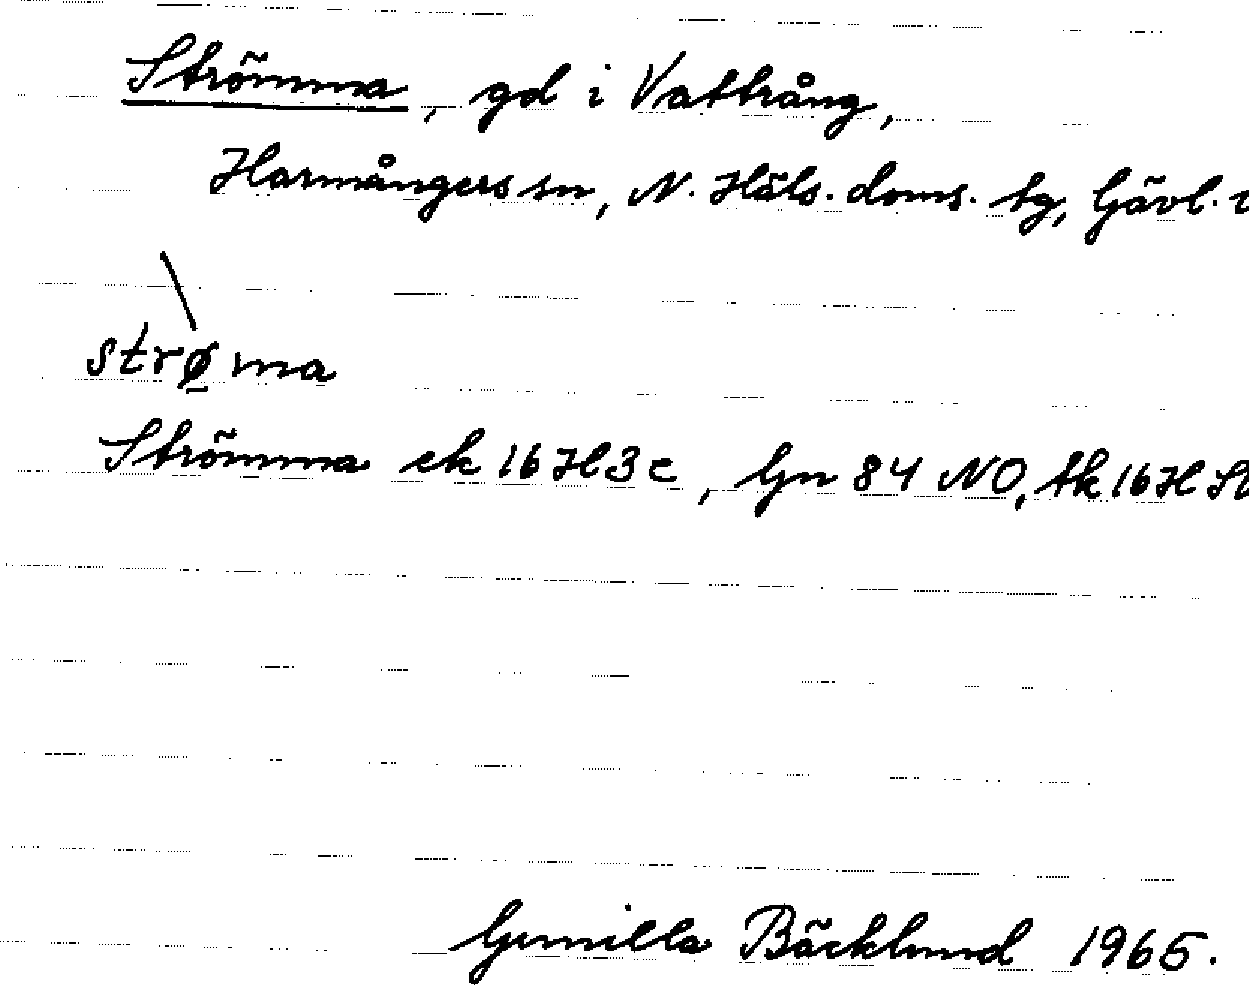 Strömma, gd i Vattrång,
Harmångers sn, N. Häls. doms. tg, Gävl.
strø̱ma
Strömma ek 16H3c, Gn 84 NO, tk 16H
Gunilla Bäcklund 1965.